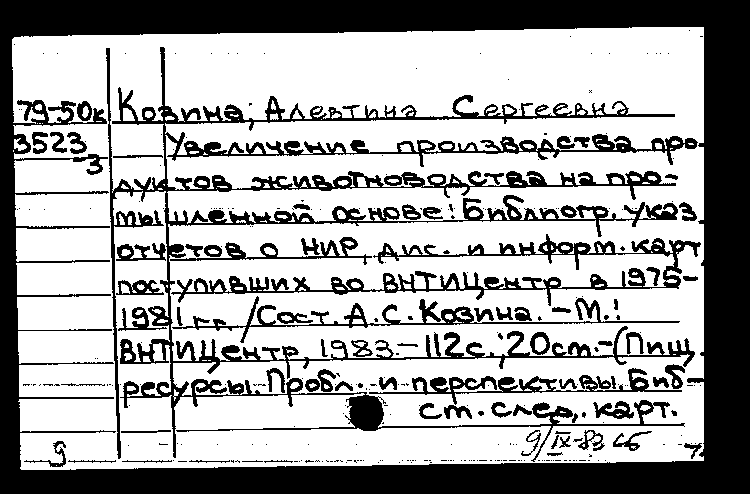 79-50к Козина, Алевтина Сергеевна
3523 Увеличение производства про-
-3
дуктов животноводства на про-
мышленной основе: Библиогр. указ.
отчетов о НИР, дис. и информ. карт,
поступивших во ВНТИЦентр в 1975-
1981 гг. /Сост. А.С. Козина. – М.:
ВНТИЦентр, 1983.- 112с.; 20см.-(Пищ.
ресурсы. Пробл. и перспективы. Биб-
см. след. карт.
9/IX-83 сб
9